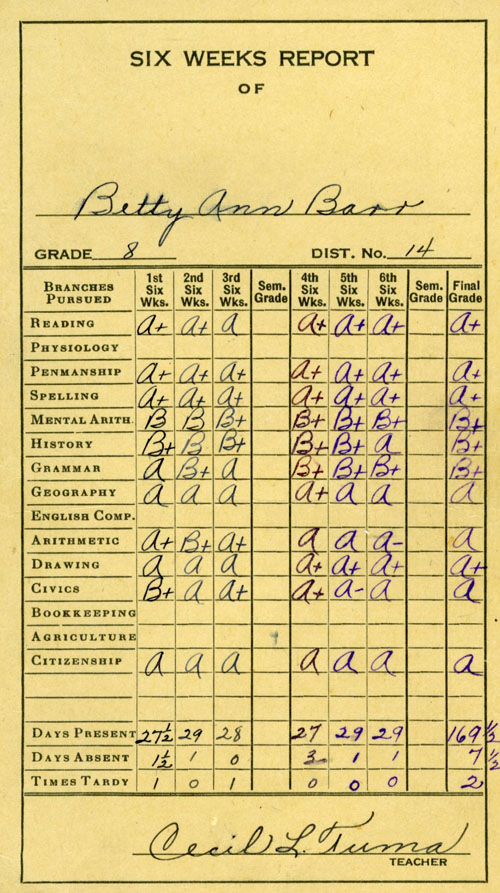 SIX WEEKS REPORT
OF
Betty Ann Barr
GRADE 8 DIST. No. 14
BRANCHES PURSUED 1st Six Wks. 2nd Six Wks. 3rd Six Wks. Sem. Grade 4th Six Wks. 5th Six Wks. 6th Six Wks. Sem. Grade Final Grade
READING A+ A+ A A+ A+ A+ A+
PHYSIOLOGY
PENMANSHIP A+ A+ A+ A+ A+ A+ A+
SPELLING A+ A+ A+ A+ A+ A+ A+
MENTAL ARITH. B B B+ B+ B+ B+ B+
HISTORY B+ B B+ B+ B+ A B+
GRAMMAR A B+ A B+ B+ B+ B+
GEOGRAPHY A A A A+ A A A
ENGLISH COMP.
ARITHMETIC A+ B+ A+ A A A- A
DRAWING A A A A+ A+ A+ A+
CIVICS B+ A A+ A+ A- A A
BOOKKEEPING
AGRICULTURE
CITIZENSHIP A A A A A A A
DAYS PRESENT 27½ 29 28 27 29 29 169½
DAYS ABSENT 1½ 1 0 3 1 1 7½
TIMES TARDY 1 0 1 0 0 0 2
Cecil L. Tuma
TEACHER